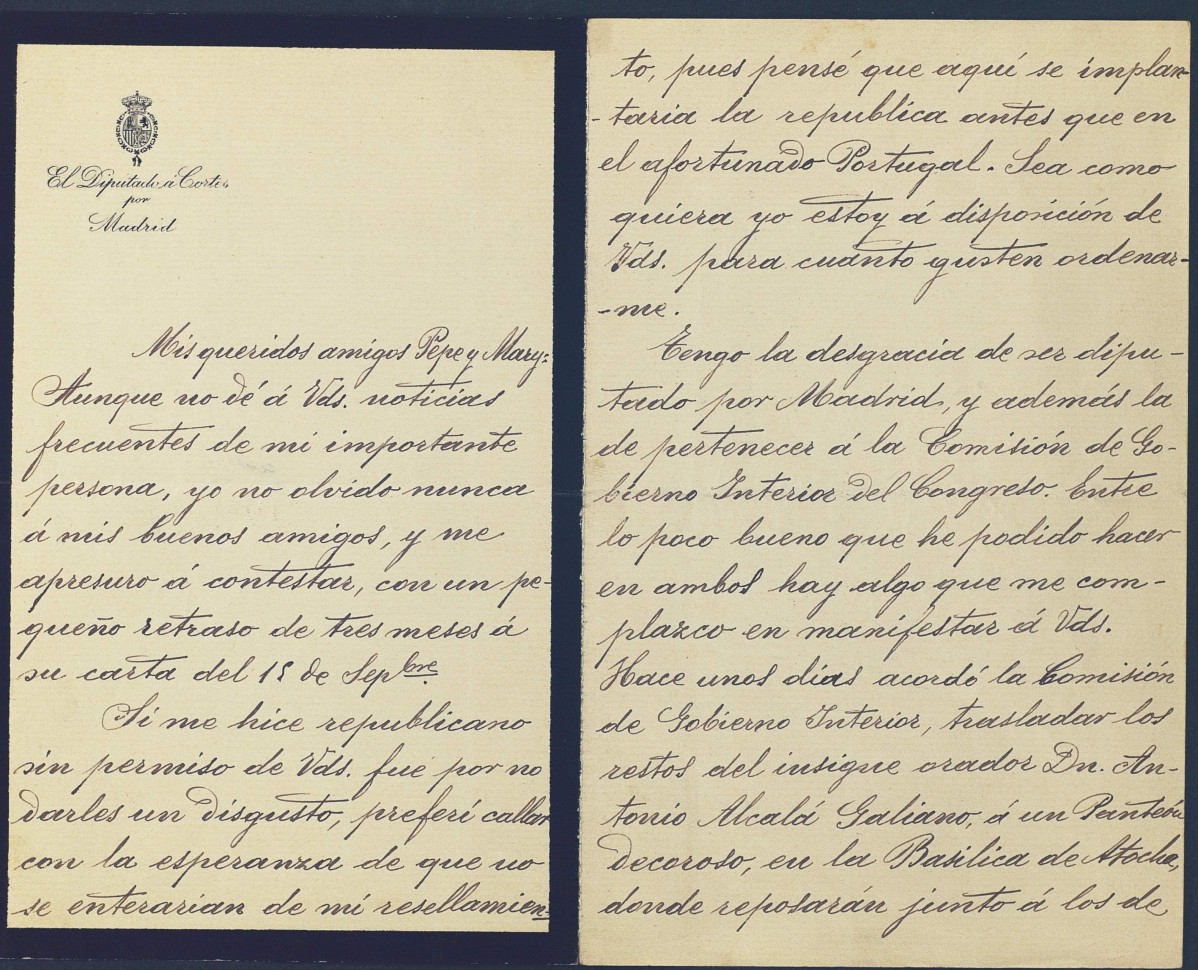 El Diputado á Cortes
por
Madrid
Mis queridos amigos Pepe y Mary:
Aunque no dé á Vds. noticias
frecuentes de mi importante
persona, yo no olvido nunca
á mis buenos amigos, y me
apresuro á contestar, con un pe-
queño retraso de tres meses á
su carta del 15 de Sepbre.
Si me hice republicano
sin permiso de Vds. fué por no
darles un disgusto, preferí callar
con la esperanza de que no
se enterarian de mi resellamien-
to, pues pensé que aquí se implan-
-taria la republica antes que en
el afortunado Portugal. Sea como
quiera yo estoy á disposición de
Vds. para cuanto gusten ordenar-
-me.
Tengo la desgracia de ser dipu-
tado por Madrid, y además la
de pertenecer á la Comisión de Go-
bierno Interior del Congreso. Entre
lo poco bueno que he podido hacer
en ambos hay algo que me com-
plazco en manifestar á Vds.
Hace unos días acordó la Comisión
de Gobierno Interior, trasladar los
restos del insigne orador Dn. An-
tonio Alcalá Galiano, á un Panteón
decoroso, en la Basilica de Atocha,
donde reposarán junto á los de